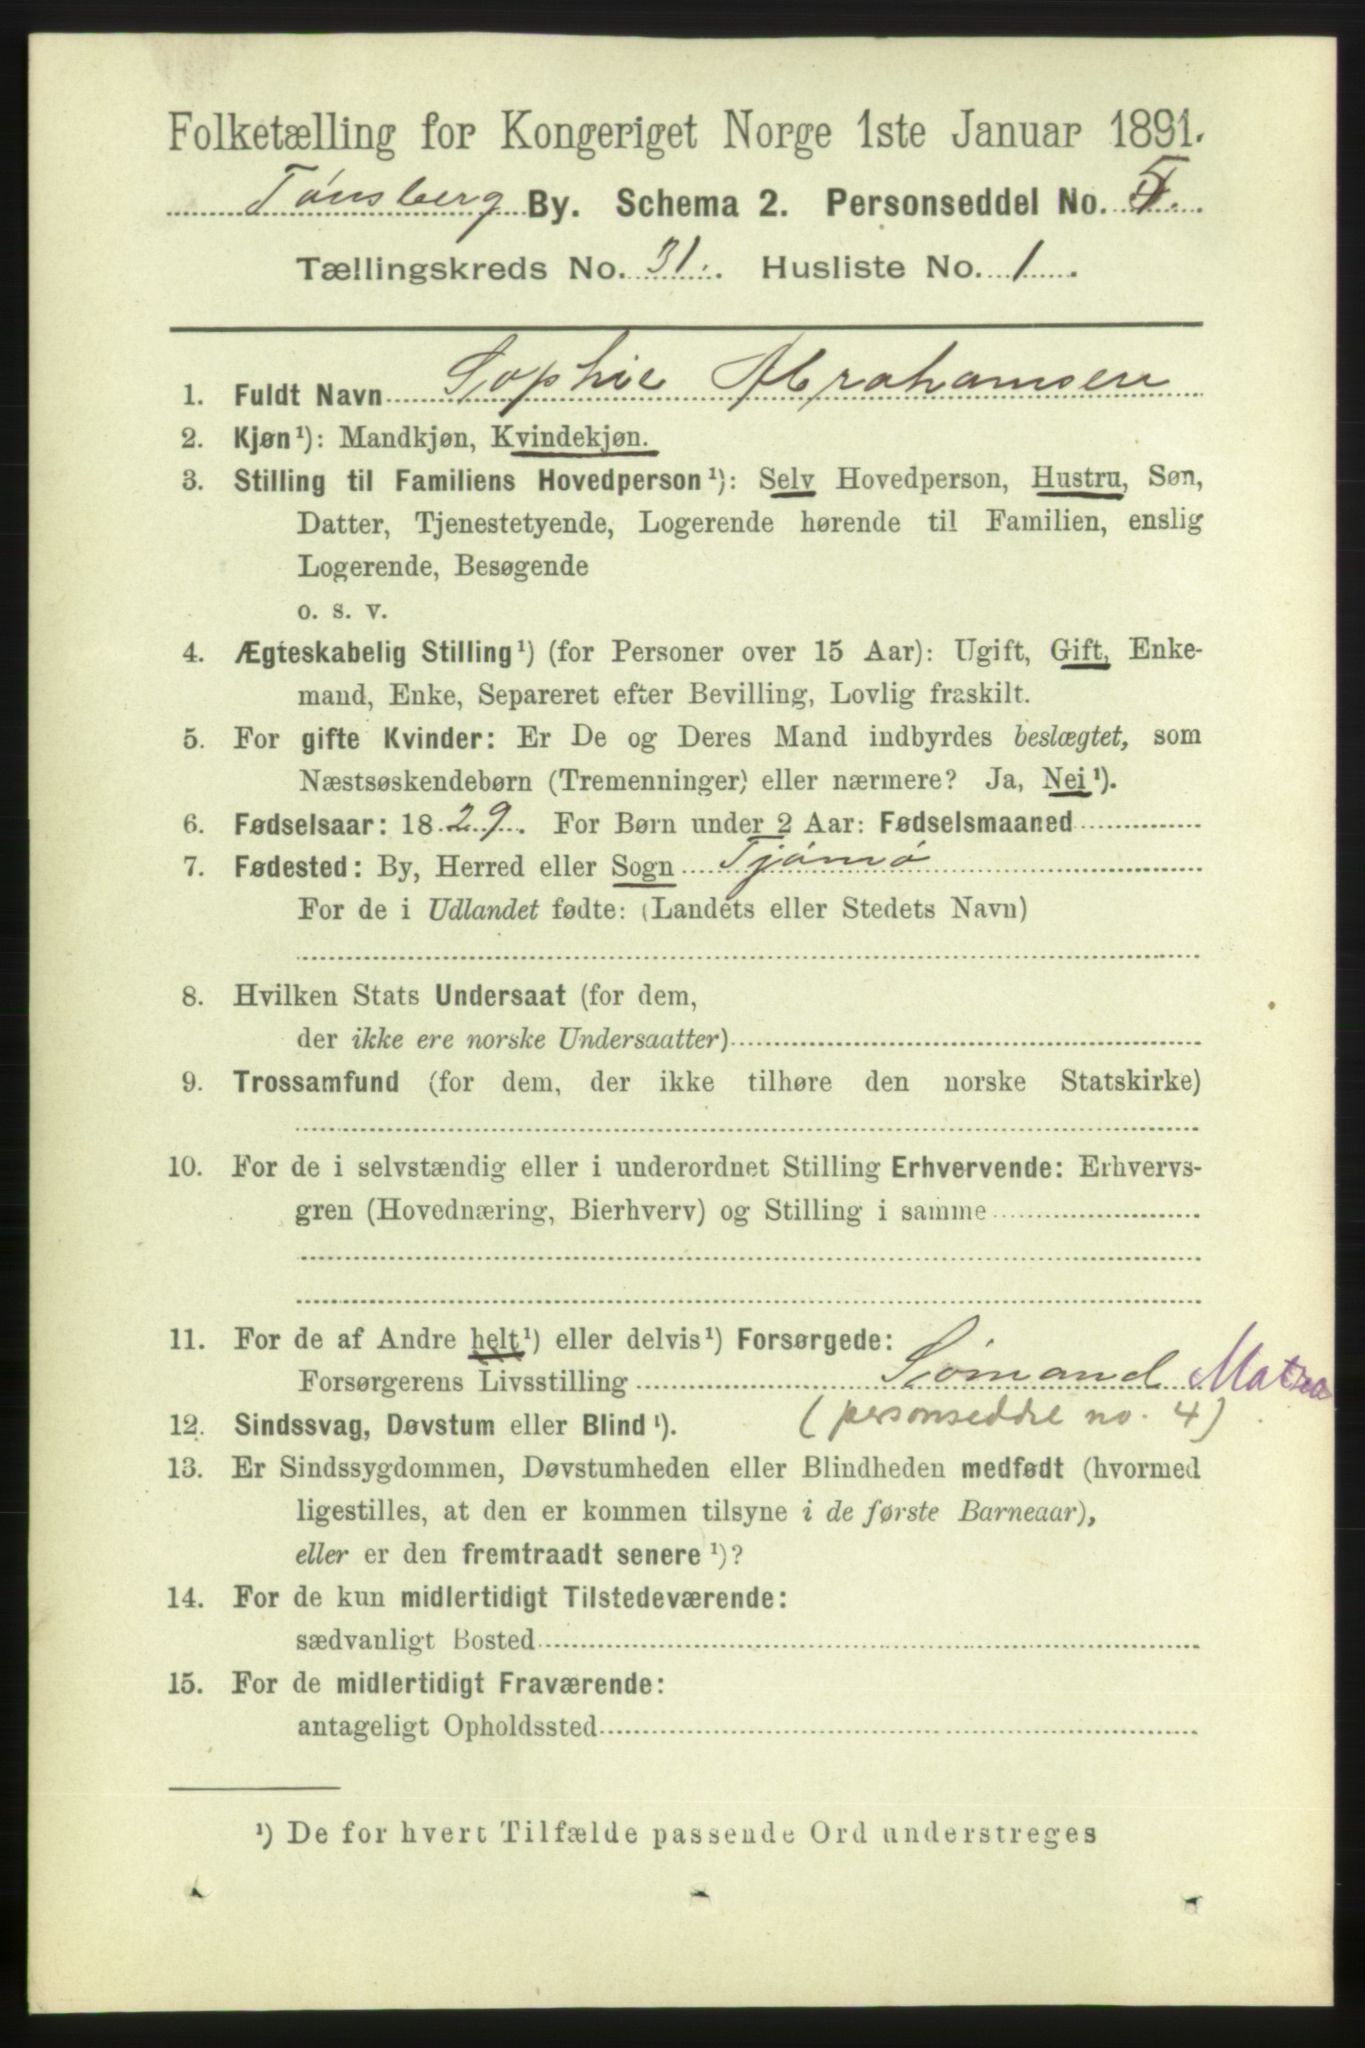 Folketælling for Kongeriget Norge 1ste Januar 1891.
Tønsberg By. Schema 2. Personseddel No. 5.
Tællingskreds No. 31. Husliste No. 1.
1. Fuldt Navn Sophie Abrahamsen
2. Kjøn¹): Mandkjøn, Kvindekjøn.
3. Stilling til Familiens Hovedperson¹): Selv Hovedperson, Hustru, Søn,
Datter, Tjenestetyende, Logerende hørende til Familien, enslig
Logerende, Besøgende
o. s. v.
4. Ægteskabelig Stilling¹) (for Personer over 15 Aar): Ugift, Gift, Enke-
mand, Enke, Separeret efter Bevilling, Lovlig fraskilt.
5. For gifte Kvinder: Er De og Deres Mand indbyrdes beslægtet, som
Næstsøskendebørn (Tremenninger) eller nærmere? Ja, Nei¹).
6. Fødselsaar: 1829. For Børn under 2 Aar: Fødselsmaaned
7. Fødested: By, Herred eller Sogn Tjømø
For de i Udlandet fødte: (Landets eller Stedets Navn)
8. Hvilken Stats Undersaat (for dem,
der ikke ere norske Undersaatter)
9. Trossamfund (for dem, der ikke tilhøre den norske Statskirke)
10. For de i selvstændig eller i underordnet Stilling Erhvervende: Erhvervs-
gren (Hovednæring, Bierhverv) og Stilling i samme
11. For de af Andre helt¹) eller delvis¹) Forsørgede:
Forsørgerens Livsstilling Sømand
12. Sindssvag, Døvstum eller Blind¹). (personseddel no. 4)
13. Er Sindssygdommen, Døvstumheden eller Blindheden medfødt (hvormed
ligestilles, at den er kommen tilsyne i de første Barneaar),
eller er den fremtraadt senere¹)?
14. For de kun midlertidigt Tilstedeværende:
sædvanligt Bosted
15. For de midlertidigt Fraværende:
antageligt Opholdssted
¹) De for hvert Tilfælde passende Ord understreges